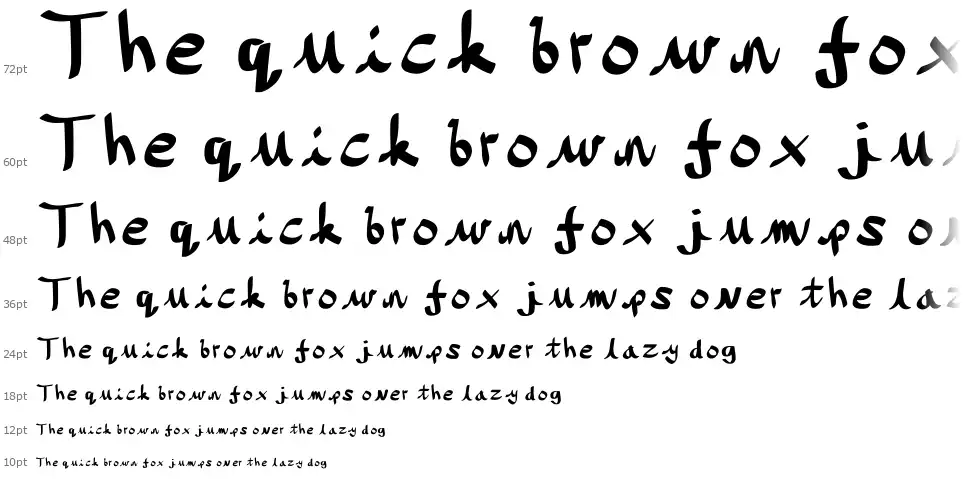 72pt The quick brown fox
60pt The quick brown fox ju
48pt The quick brown fox jumps o
36pt The quick brown fox jumps over the laz
24pt The quick brown fox jumps over the lazy dog
18pt The quick brown fox jumps over the lazy dog
12pt The quick brown fox jumps over the lazy dog
10pt The quick brown fox jumps over the lazy dog